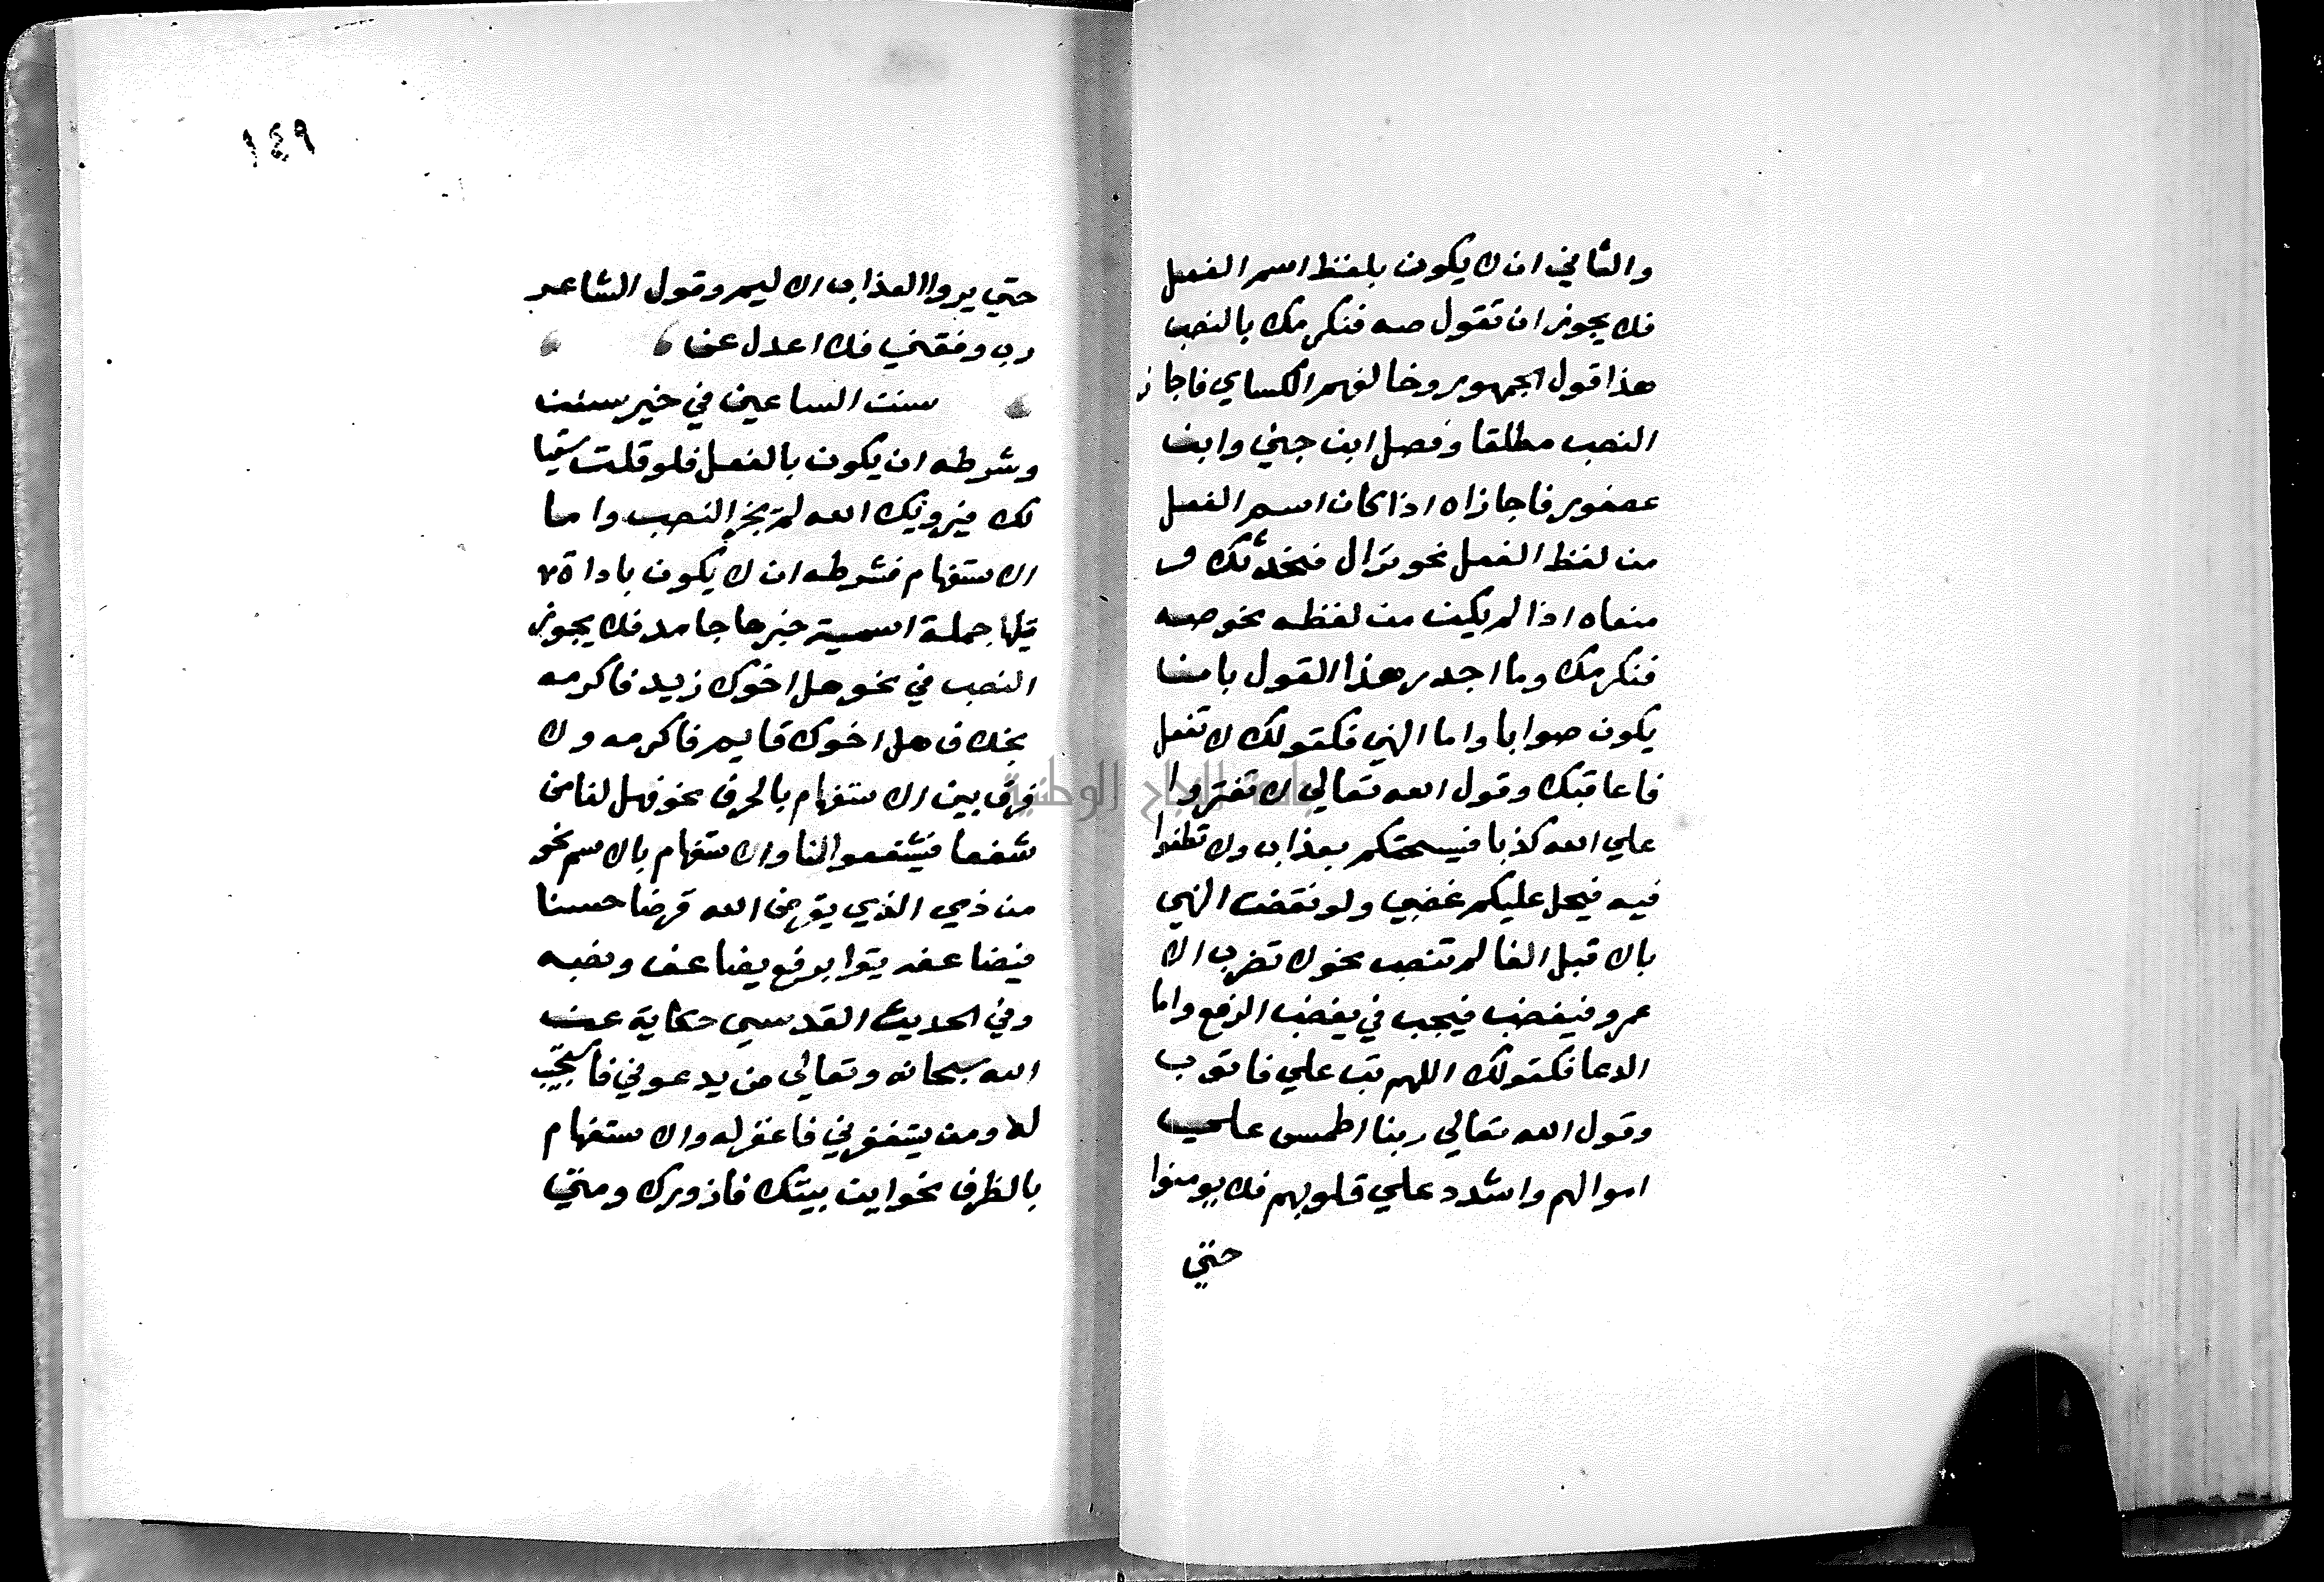 والثاني ان لا يكون بلفظ اسم الفعل
فلا يجوز ان تقول صه فنكرمك بالنصب
هذا قول الجمهور وخالفهم الكساي فاجاز
النصب مطلقا وفصل ابن جني وابن
عصفور فاجازاه اذا كان اسم الفعل
من لفظ الفعل نحو نزال فنحدثك و
منعاه اذا لم يكن من لفظه نحو صه
فنكرمك وما اجدر هذا القول بان
يكون صوابا واما النهي فكقولك لا تفعل
فاعاقبك وقول الله تعالي لا تفتروا
علي الله كذبا فيسحتكم بعذاب ولا تطغوا
فيه فيحل عليكم غضبي ولو نقضت النهي
بالا قبل الفا لم تنصب نحو لا تضرب الا
عمرو فيغضب فيجب في يغضب الرفع واما
الدعا فكقولك اللهم تب علي فاتوب
وقول الله تعالي ربنا اطمس علي
اموالهم واشدد علي قلوبهم فلا يومنوا
حتي
١٤٩
حتي يروا العذاب الاليم وقول الشاعر
رب وفقني فلا اعدل عن
سنن الساعين في خير سنن
وشرطه ان يكون بالفعل فلو قلت سقيا
لك فيرويك الله لم يجز النصب واما
الاستفهام فشرطه ان لا يكون باداة
يليها جملة اسمية خبرها جامد فلا يجوز
النصب في نحو هل اخوك زيد فاكرمه
بخلاف هل اخوك قايم فاكرمه ولا
فرق بين الاستفهام بالحرف نحو فهل لنا من
شفعا فيشفعوا لنا والاستفهام بالاسم نحو
من ذي الذي يقرض الله قرضا حسنا
فيضاعفه يقرا برفع يضاعف ونصبه
وفي الحديث القدسي حكاية عن
الله سبحانه وتعالي من يدعوني فاستجيب
له ومن يستغفرني فاغفر له والاستفهام
بالظرف نحو اين بيتك فازورك ومتي
جامعة النجاح الوطنية